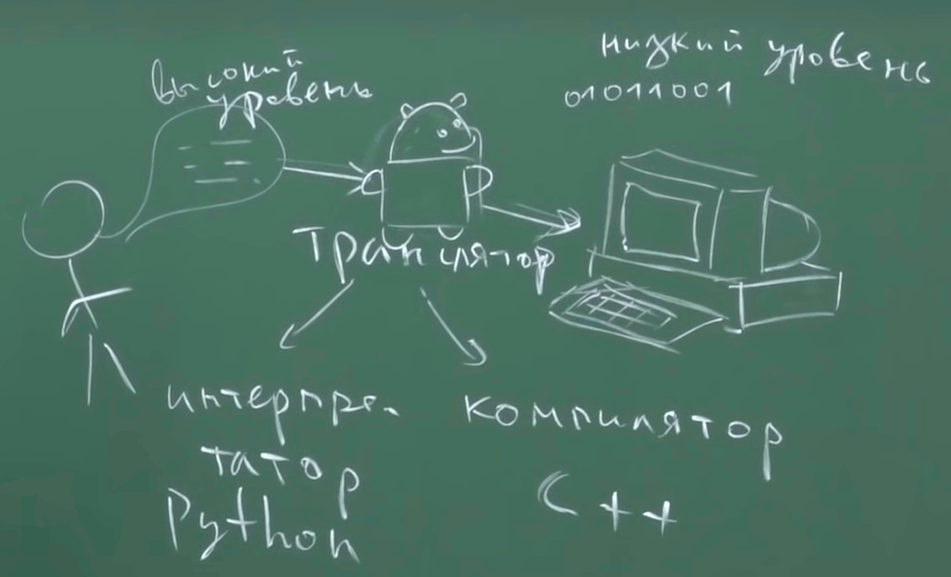 высокий
уровень
низкий уровень
01011001
Транслятор
интерпре-
татор
Python
компилятор
C++